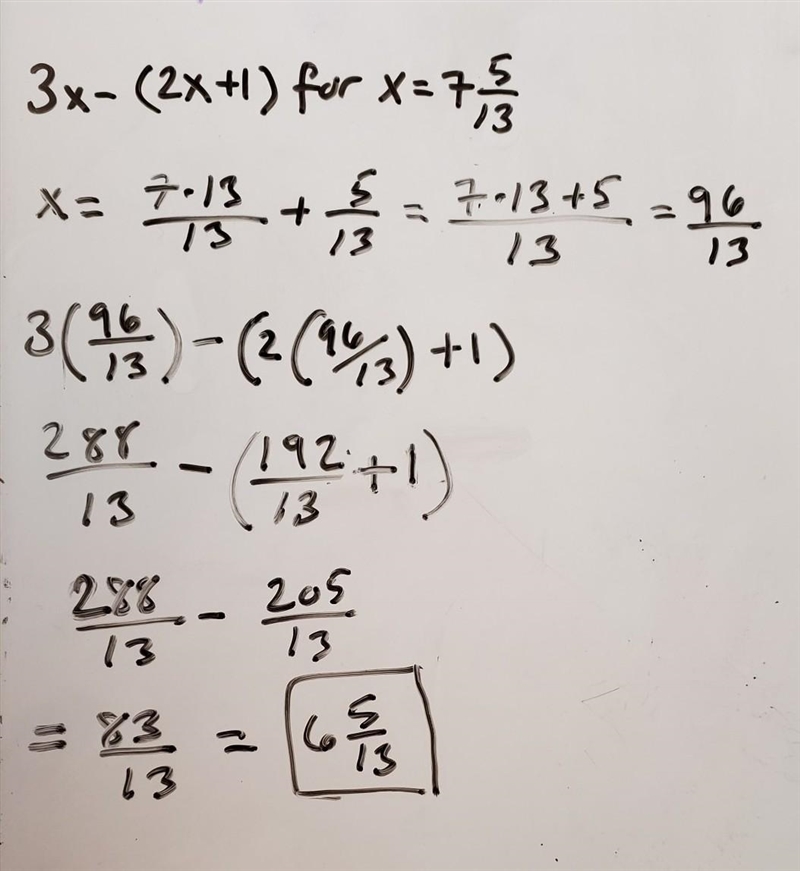 3x - (2x+1) for x = 7 5/13
x = 7·13/13 + 5/13 = 7·13+5/13 = 96/13
3(96/13) - (2(96/13) + 1)
288/13 - (192/13 + 1)
288/13 - 205/13
= 83/13 = 6 5/13